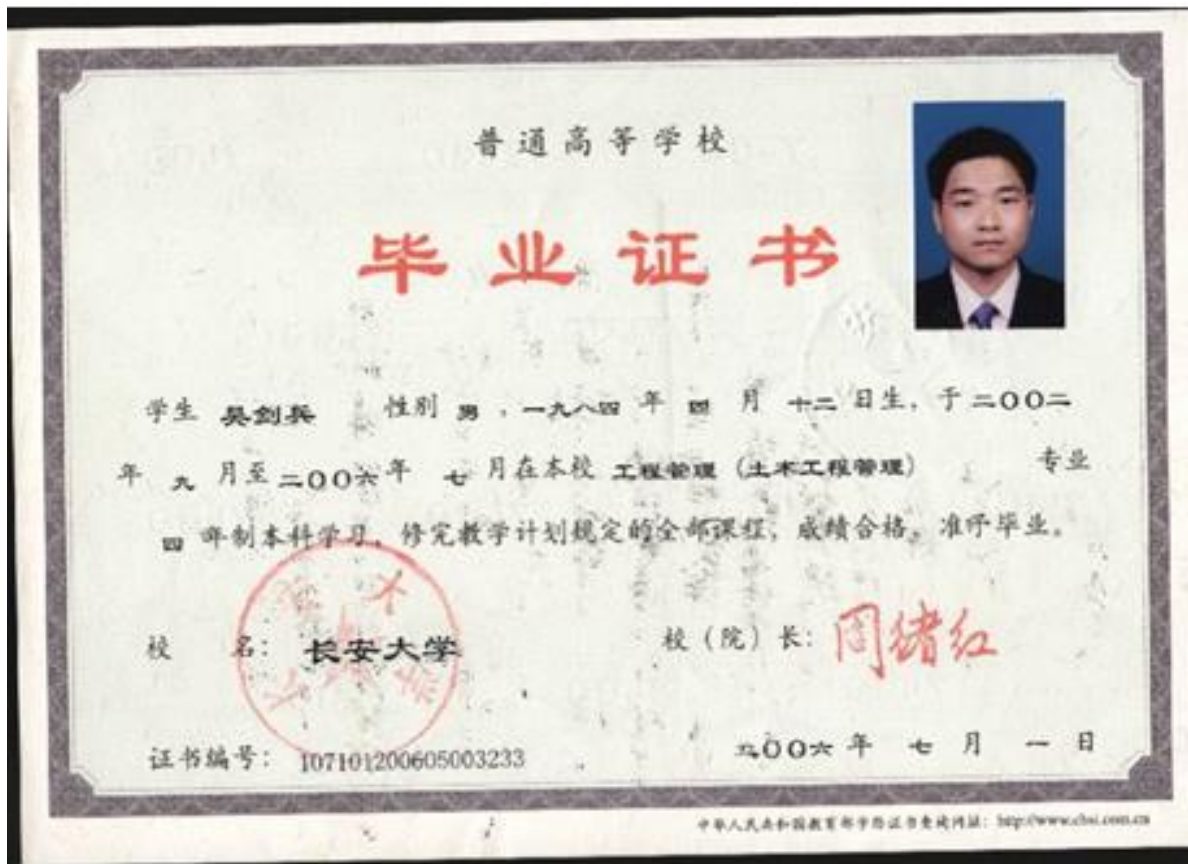 普通高等学校
毕业证书
学生 吴剑兵 性别 男，一九八四 年 四 月 十二 日生，于 二〇〇二
年 九 月至 二〇〇六 年 七 月在本校 工程管理（土木工程管理） 专业
四 年制本科学习，修完教学计划规定的全部课程，成绩合格，准予毕业。
校 名： 长安大学 校（院）长： 周绪红
长安大学
证书编号： 107101200605003233 二〇〇六 年 七 月 一 日
中华人民共和国教育部学历证书查询网址：http://www.chsi.com.cn